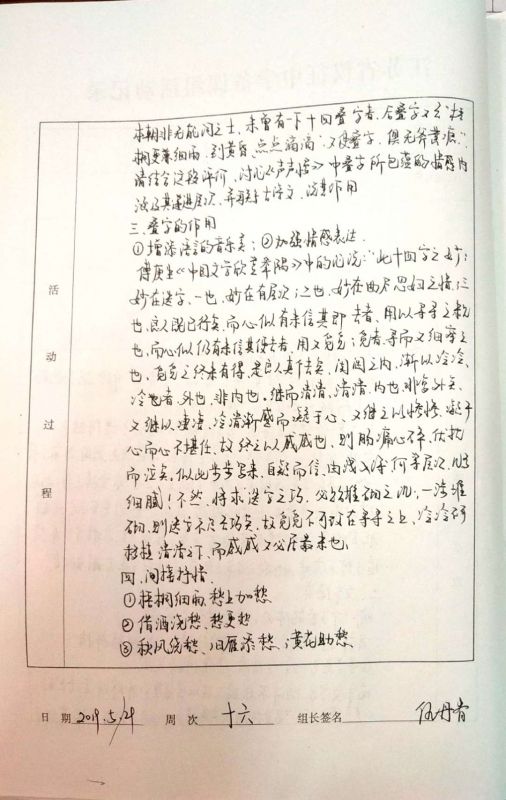 本朝非无能词之士，未曾有一下十四叠字者，后叠字又云"梧
桐更兼细雨，到黄昏，点点滴滴"又使叠字，俱无斧凿痕"
请结合这段评价，讨论《声声慢》中叠字所包蕴的情感内
涵及其递进层次，并再联系古诗文，谈其作用
三.叠字的作用
①增添语言的音乐美；②加强情感表达.
傅庚生《中国文学欣赏举隅》中的论说："此十四字之妙：
妙在叠字，一也，妙在有层次，二也，妙在曲尽思妇之情，三
也，良人既已行矣，而心似有未信其即去者，用以寻寻之未
也，而心似仍有未信其便去者，用又觅觅；觅者，寻而又细察之
也，觅觅之终未有得，是良人真个去矣，闺闼之内，渐以冷冷，
冷冷者，外也，非内也。继而清清，清清，内也，非复外矣，
又继以凄凄，冷清渐蹙而凝于心，又继之以惨惨，凝于
心而心不堪任，故终之以戚戚也，则肠痛心碎，伏枕
而泣矣，似此步步写来，自疑而信，由浅入深，何等层次，几多
细腻！不然，将求叠字之巧，必贻堆砌之讥，一涉堆
砌，则叠字不足云巧矣，故觅觅不可改在寻寻之上，冷冷不可
移植清清之下，而戚戚又必居最末也，
四、间接抒情
①梧桐细雨，愁上加愁
②借酒浇愁，愁更愁
③秋风绕愁、旧雁添愁、黄花助愁
活动过程
日 期 2019.5.29 周 次 十六 组长签名